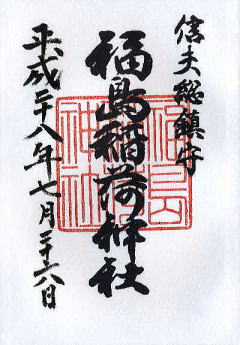 信夫総鎮守
福島稲荷神社
平成二十八年七月二十六日